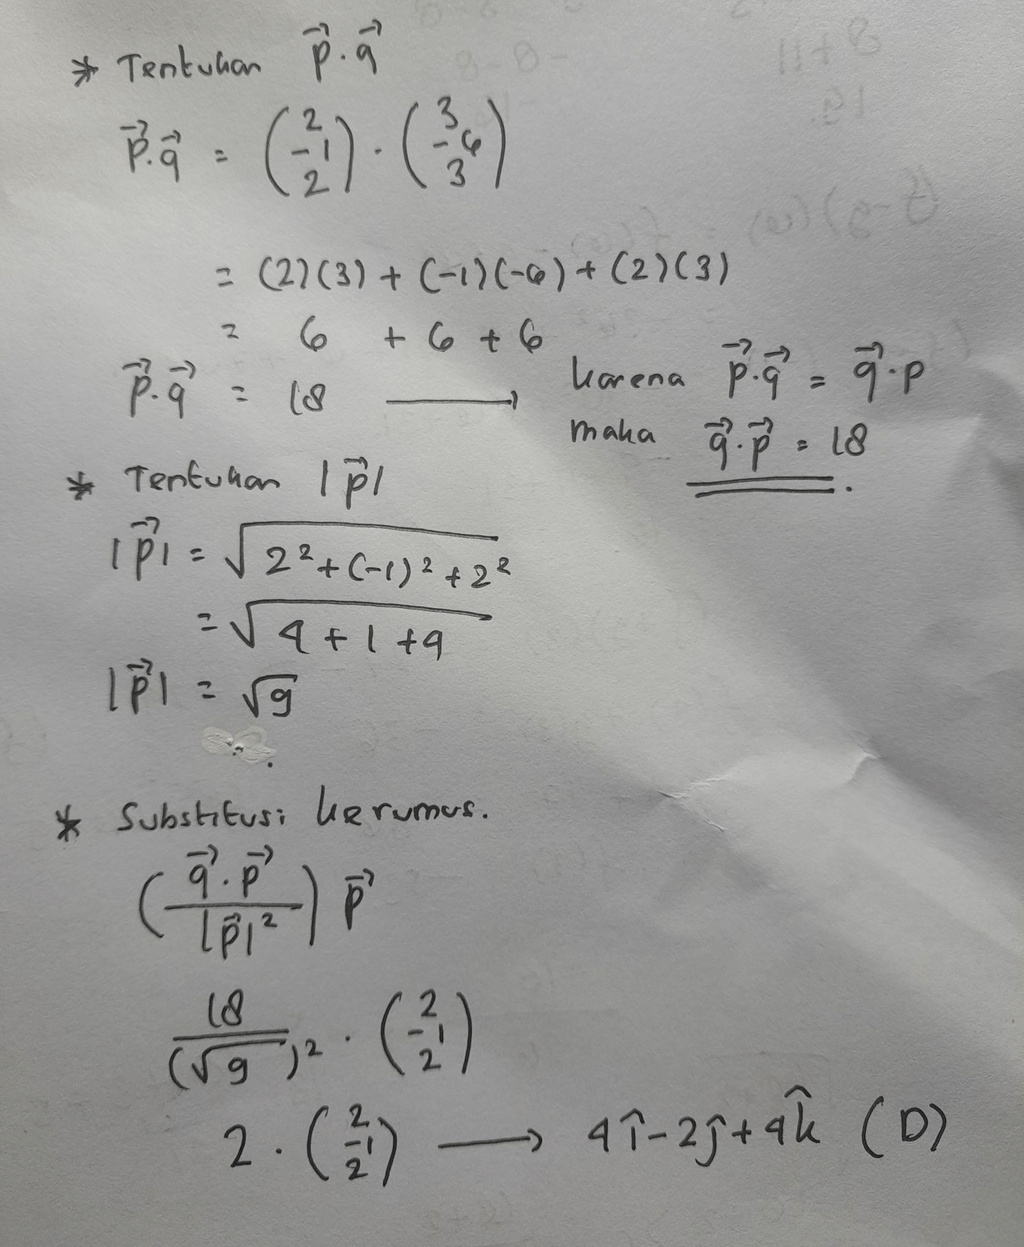 * Tentukan p⃗.q⃗
p⃗.q⃗ = (2 -1 2) . (3 -6 3)
= (2)(3) + (-1)(-6) + (2)(3)
= 6 + 6 + 6
p⃗.q⃗ = 18 → karena p⃗.q⃗ = q⃗.p
maka q⃗.p⃗ = 18.
* Tentukan |p⃗|
|p⃗| = √(2² + (-1)² + 2²)
= √(4 + 1 + 4)
|p⃗| = √9
* Substitusi ke rumus.
(q⃗.p⃗ / |p⃗|²) p⃗
18 / (√9)² . (2 -1 2)
2 . (2 -1 2) → 4î - 2ĵ + 4k̂ (D)